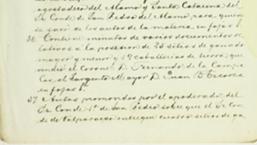 agostadero del Alamo y Santa Catarina del
Sr. Conde de San Pedro del Alamo para, que
se den de los autos de la materia en fojas 8.
36. Contiene minutas de varios documentos re-
lativos a la posesion de 26 sitios de ganado
mayor y menor y 19 caballerias de tierra, que
vendió el coronel D. Fernando de la Campa
Cos al Sargento Mayor D. Juan B.
en fojas 6.
37. Autos promovidos por el apoderado del
Sr. Conde de San Pedro sobre que el Sr. Con-
de de Valparaiso entregue cuatro sitios de ga